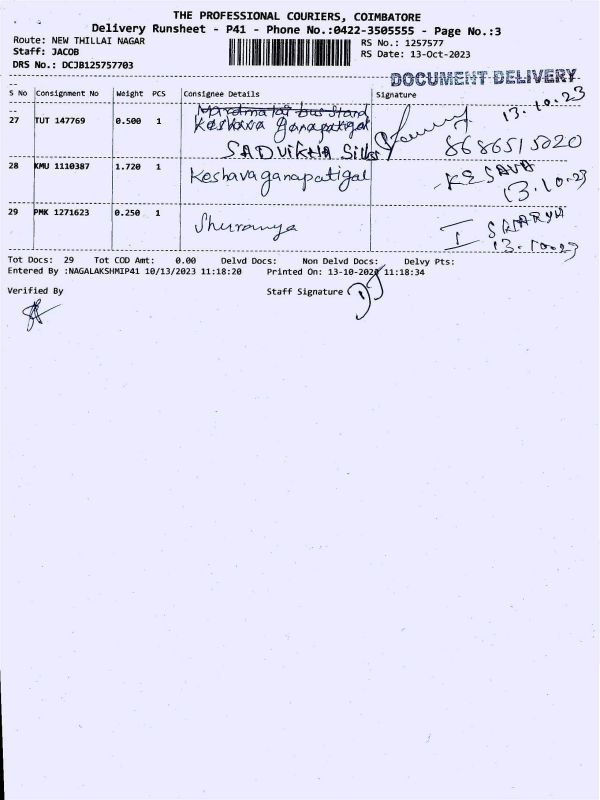 THE PROFESSIONAL COURIERS, COIMBATORE
Delivery Runsheet - P41 - Phone No.:0422-3505555 - Page No.:3
Route: NEW THILLAI NAGAR RS No.: 1257577
Staff: JACOB RS Date: 13-Oct-2023
DRS No.: DCJB125757703
DOCUMENT DELIVERY
S No Consignment No Weight PCS Consignee Details Signature
bus Stand 13.10.23
27 TUT 147769 0.500 1 Keshava ganapatigal
SADVIKHA Silks 8686515020
28 KMU 1110387 1.720 1 Keshavaganapatigal KESAVA
13.10.23
29 PMK 1271623 0.250 1
13.10.23
Tot Docs: 29 Tot COD Amt: 0.00 Delvd Docs: Non Delvd Docs: Delvy Pts:
Entered By :NAGALAKSHMIP41 10/13/2023 11:18:20 Printed On: 13-10-2023 11:18:34
Verified By Staff Signature DJ